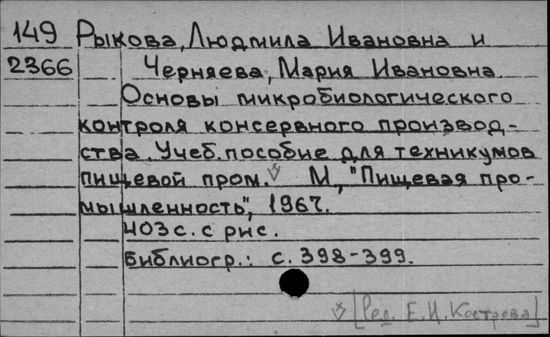 149 Рыкова, Людмила Ивановна и
2366 Черняева, Мария Ивановна.
Основы микробиологического
контроля консервного производ-
ства. Учеб. пособие для техникумов
пищевой пром. М., "Пищевая про-
мышленность", 1967.
403 с. с рис.
Библиогр.: с. 398-399.
[Ред. Е. И. Кострова]